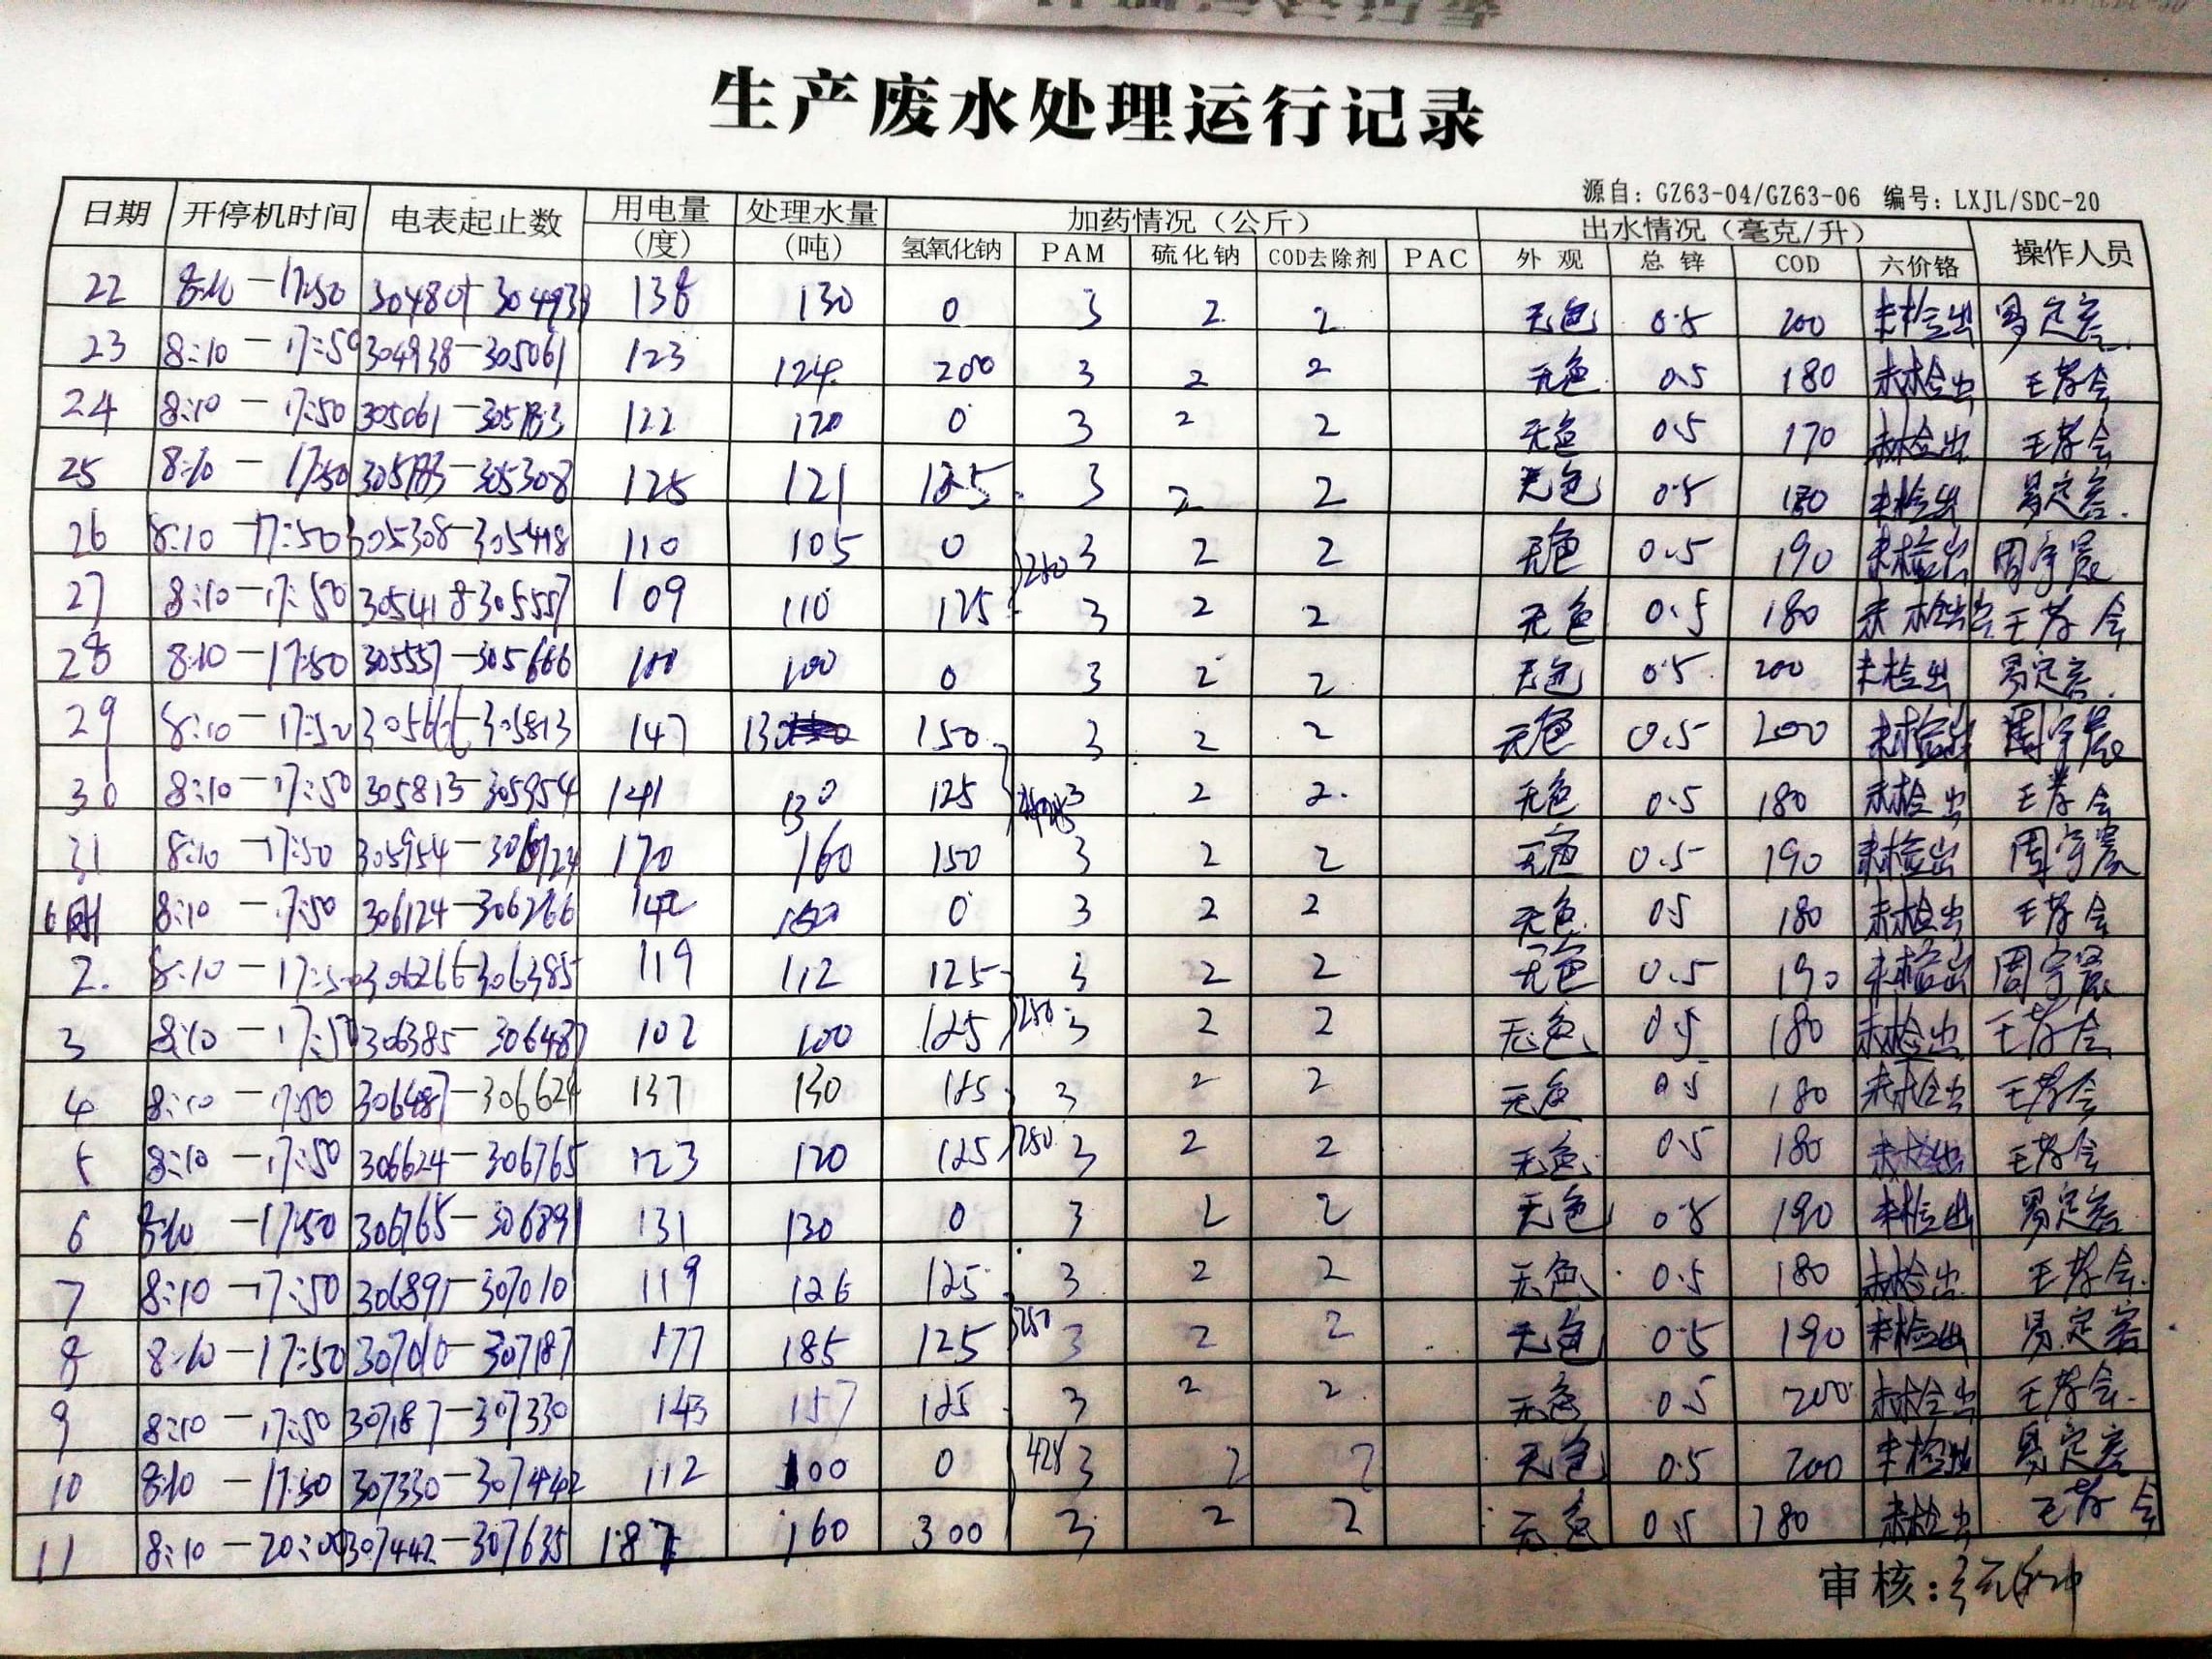 生产废水处理运行记录
源自：GZ63-04/GZ63-06 编号：LXJL/SDC-20
日期 开停机时间 电表起止数 用电量（度） 处理水量（吨） 加药情况（公斤） 出水情况（毫克/升） 操作人员
氢氧化钠 PAM 硫化钠 COD去除剂 PAC 外观 总锌 COD 六价铬
22 8:10-17:50 138 130 0 3 2 2 无色 0.5 200 未检出
23 8:10-17:50 304938-305061 123 124 200 3 2 2 无色 0.5 180 未检出
24 8:10-17:50 305061-305183 122 120 0 3 2 2 无色 0.5 170 未检出
25 8:10-17:50 305183-305308 125 121 125 3 2 2 无色 0.5 180 未检出
26 8:10-17:50 305308-305418 110 105 0 3 2 2 无色 0.5 190 未检出 周宇宸
27 8:10-17:50 305418-305557 109 110 125 250 3 2 2 无色 0.5 180 未检出
28 8:10-17:50 305557-305666 100 100 0 3 2 2 无色 0.5 200 未检出
29 8:10-17:50 305666-305813 147 130 150 3 2 2 无色 0.5 200 未检出 周宇宸
30 8:10-17:50 305813-305954 141 130 125 3 2 2 无色 0.5 180 未检出
31 8:10-17:50 305954-306124 170 160 150 3 2 2 无色 0.5 190 未检出 周宇宸
8:10-17:50 306124-306266 142 0 3 2 2 无色 0.5 180 未检出
2. 8:10-17:50 306266-306385 119 112 125 3 2 2 无色 0.5 190 未检出 周宇宸
3 8:10-17:50 306385-306487 102 100 125 250 3 2 2 无色 0.5 180 未检出
4 8:10-17:50 306487-306624 137 130 125 3 2 2 无色 0.5 180 未检出
5 8:10-17:50 306624-306765 123 120 125 250 3 2 2 无色 0.5 180 未检出
6 8:10-17:50 306765-306891 131 130 0 3 2 2 无色 0.5 190 未检出
7 8:10-17:50 306891-307010 119 126 125 3 2 2 无色 0.5 180 未检出
8 8:10-17:50 307010-307187 177 185 125 250 3 2 2 无色 0.5 190 未检出
9 8:10-17:50 307187-307330 143 157 125 3 2 2 无色 0.5 200 未检出
10 8:10-17:50 307330-307442 112 100 0 3 2 2 无色 0.5 200 未检出
11 8:10-20:00 307442-307635 187 160 300 3 2 2 无色 0.5 180 未检出
审核：